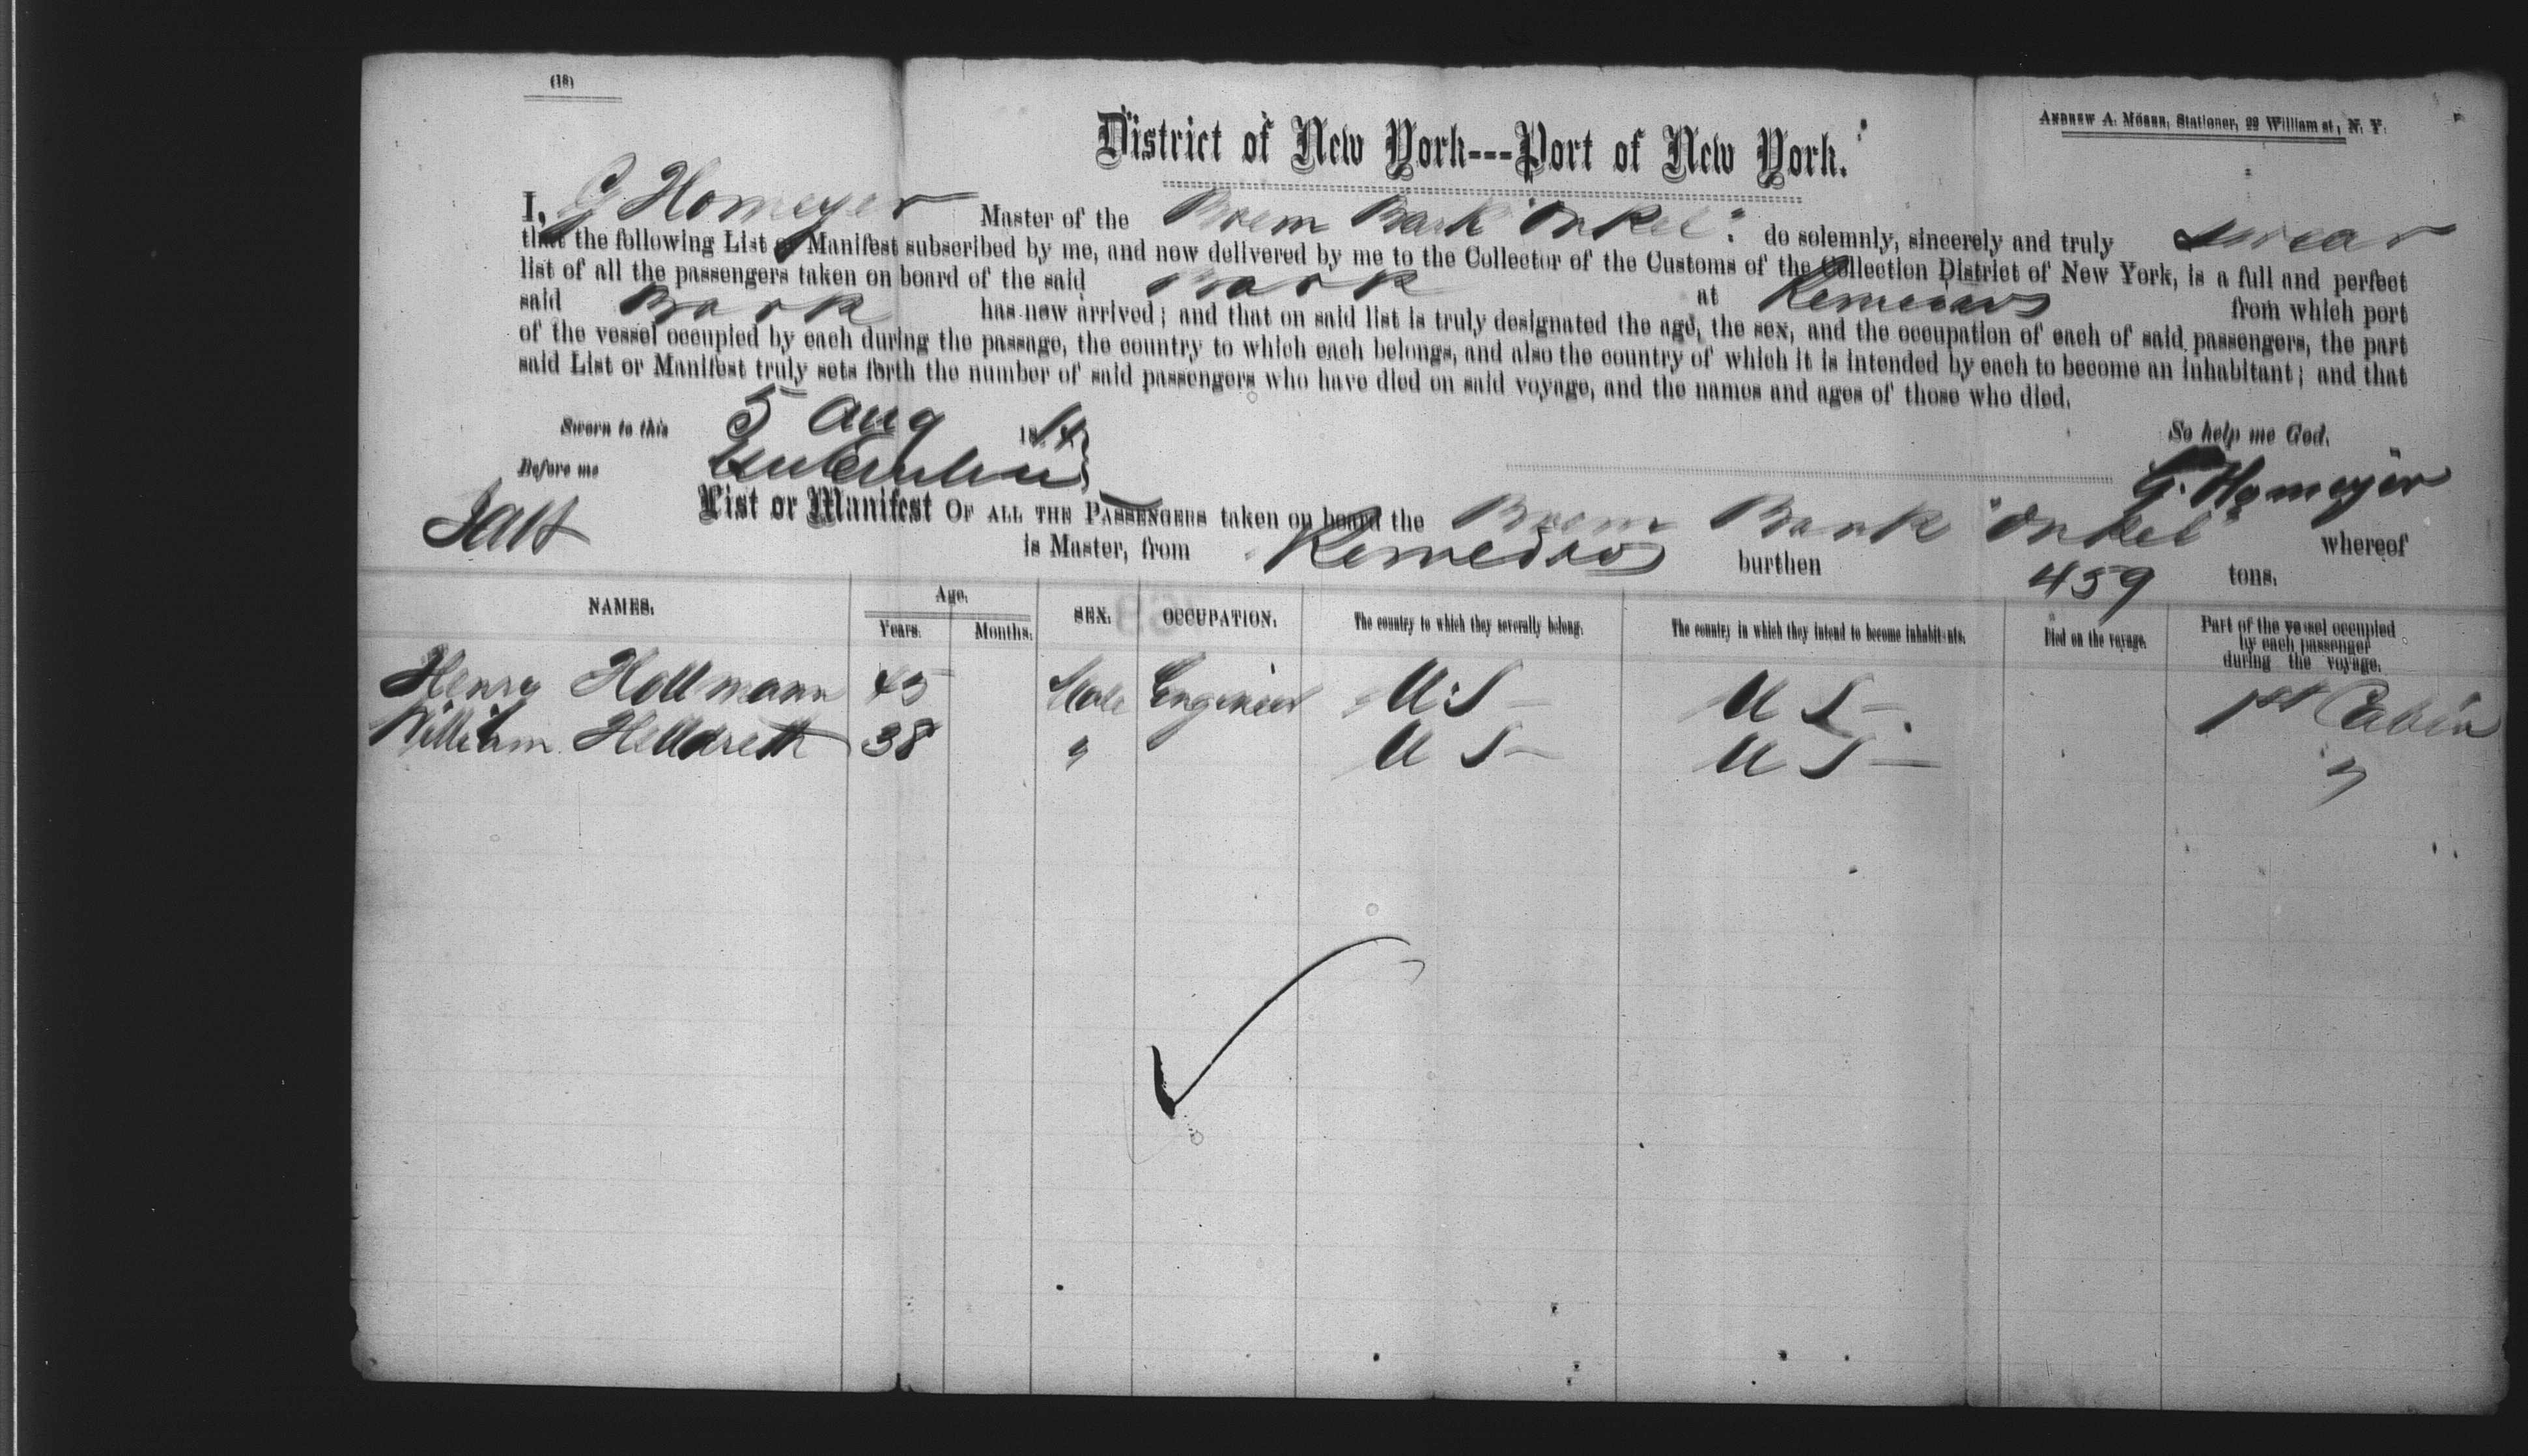 (18)
ANDREW A. Mösen, Stationer, 22 William st, N. Y.
District of New York---Port of New York.
I, G Homeyer Master of the Brem Bark "Onkel" do solemnly, sincerely and truly swear
that the following List or Manifest subscribed by me, and now delivered by me to the Collector of the Customs of the Collection District of New York, is a full and perfect
list of all the passengers taken on board of the said Bark at Remedios from which port
said Bark has now arrived; and that on said list is truly designated the age, the sex, and the occupation of each of said passengers, the part
of the vessel occupied by each during the passage, the country to which each belongs, and also the country of which it is intended by each to become an inhabitant; and that
said List or Manifest truly sets forth the number of said passengers who have died on said voyage, and the names and ages of those who died.
Sworn to this 5 Aug 18 So help me God.
Before me G. Homeyer
List or Manifest OF ALL THE PASSENGERS taken on board the Brem Bark "Onkel" whereof
is Master, from Remedios burthen 459 tons.
NAMES. Age. Years. Months. SEX. OCCUPATION. The country to which they severally belong. The country in which they intend to become inhabitants. Died on the voyage. Part of the vessel occupied by each passenger during the voyage.
Henry Hollmann 45 Male Engineer U.S - U S - 1st Cabin
William Helldreth 38 " U S - U S - "